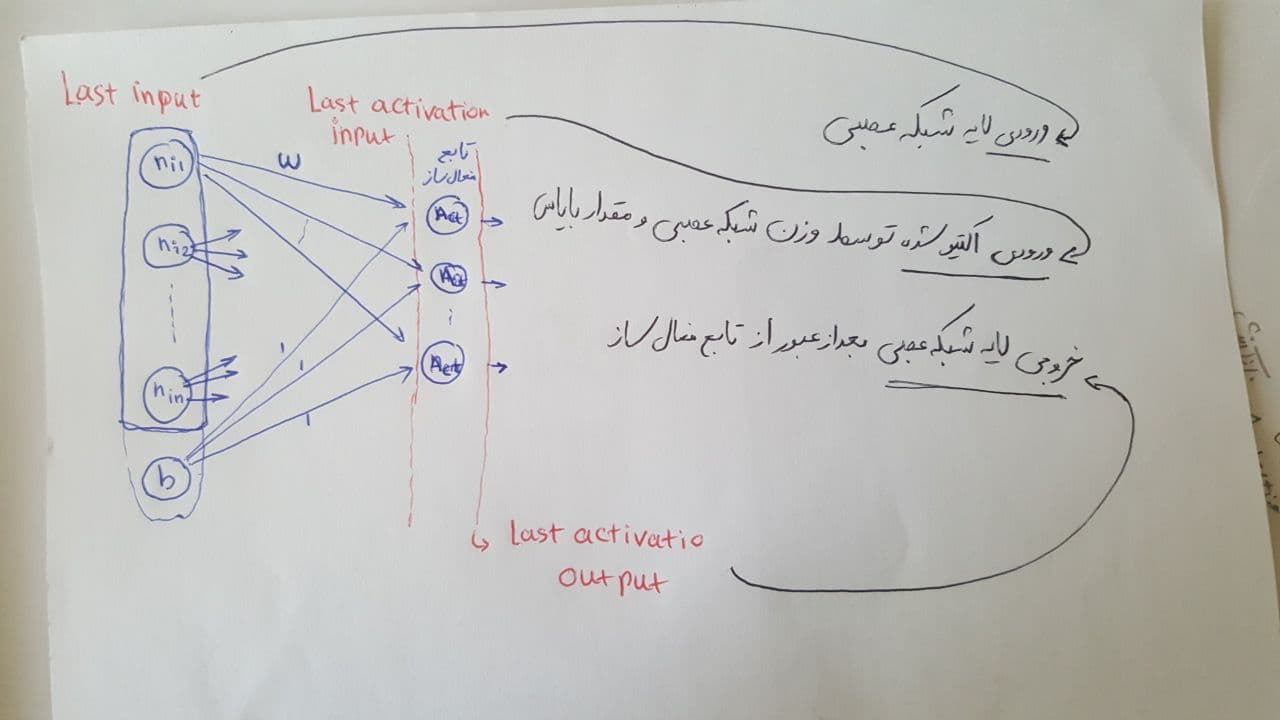 Last input
Last activation
input
تابع
فعال ساز
w
ni1
ni2
nin
b
Act
Act
Act
1
1
1
ورودی لایه شبکه عصبی
ورودی اکتیو شده توسط وزن شبکه عصبی و مقدار بایاس
خروجی لایه شبکه عصبی بعد از عبور از تابع فعال ساز
Last activatio
output